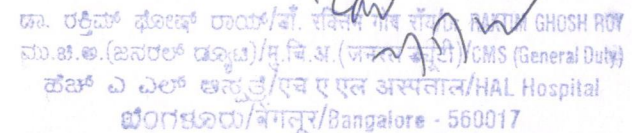 ಡಾ. ರಕ್ತಿಮ್ ಘೋಷ್ ರಾಯ್/डॉ. रक्तिम घोष रॉय/Dr RAKTIM GHOSH ROY
ಮು.ಚಿ.ಅ.(ಜನರಲ್ ಡ್ಯೂಟಿ)/मु.चि.अ.(जनरल ड्यूटी)/CMS (General Duty)
ಹೆಚ್ ಎ ಎಲ್ ಆಸ್ಪತ್ರೆ/एच ए एल अस्पताल/HAL Hospital
ಬೆಂಗಳೂರು/बेंगलूर/Bangalore - 560017